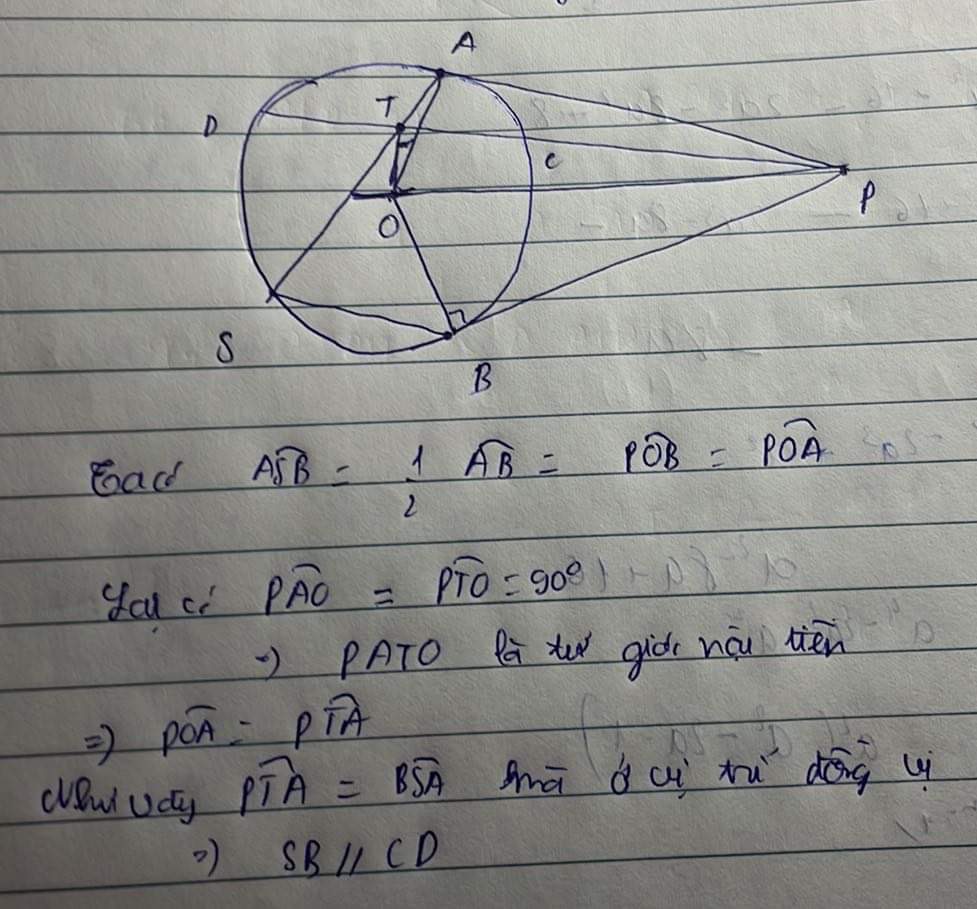 A
D
T
C
P
O
S
B
Ta có ASB = 1/2 AB = POB = POA
Lại có PAO = PTO = 90°
=> PATO là tứ giác nội tiếp
=> POA = PTA
Như vậy PTA = BSA mà ở vị trí đồng vị
=> SB // CD